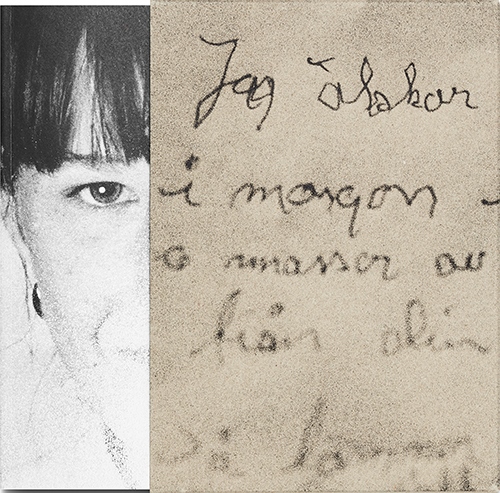 Jag älskar
i morgon
o masser av
från din